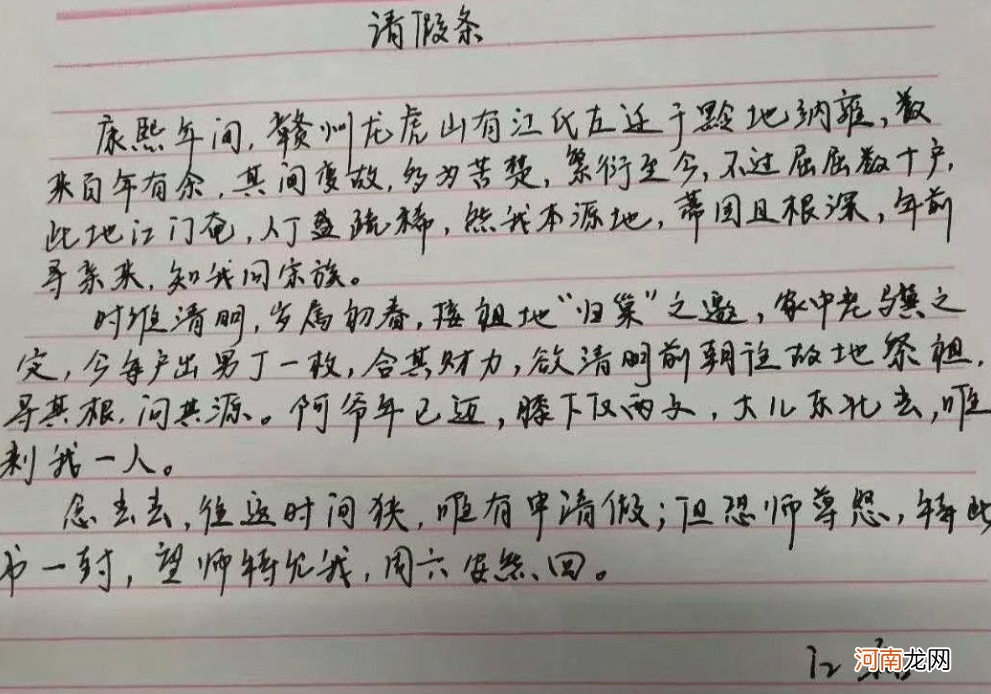 请假条
康熙年间,赣州龙虎山有江氏左迁于黔地纳雍,数
来百年有余,其间变故,多为苦楚,繁衍至今,不过屈屈数十户,
此地江门奄,人丁益疏稀,然我本源地,蒂固且根深,年前
寻亲来,知我同宗族。
时维清明,岁属初春,接祖地“归巢”之邀,家中老
定,今每户出男丁一枚,合其财力,欲清明前朝往故地祭祖,
寻其根,问其源。阿爷年已迈,膝下仅两文,大儿东北去,唯
剩我一人。
念去去,往返时间狭,唯有申请假;但恐师尊怒,特此
书一封,望师特允我,周六安然回。
江
河南龙网